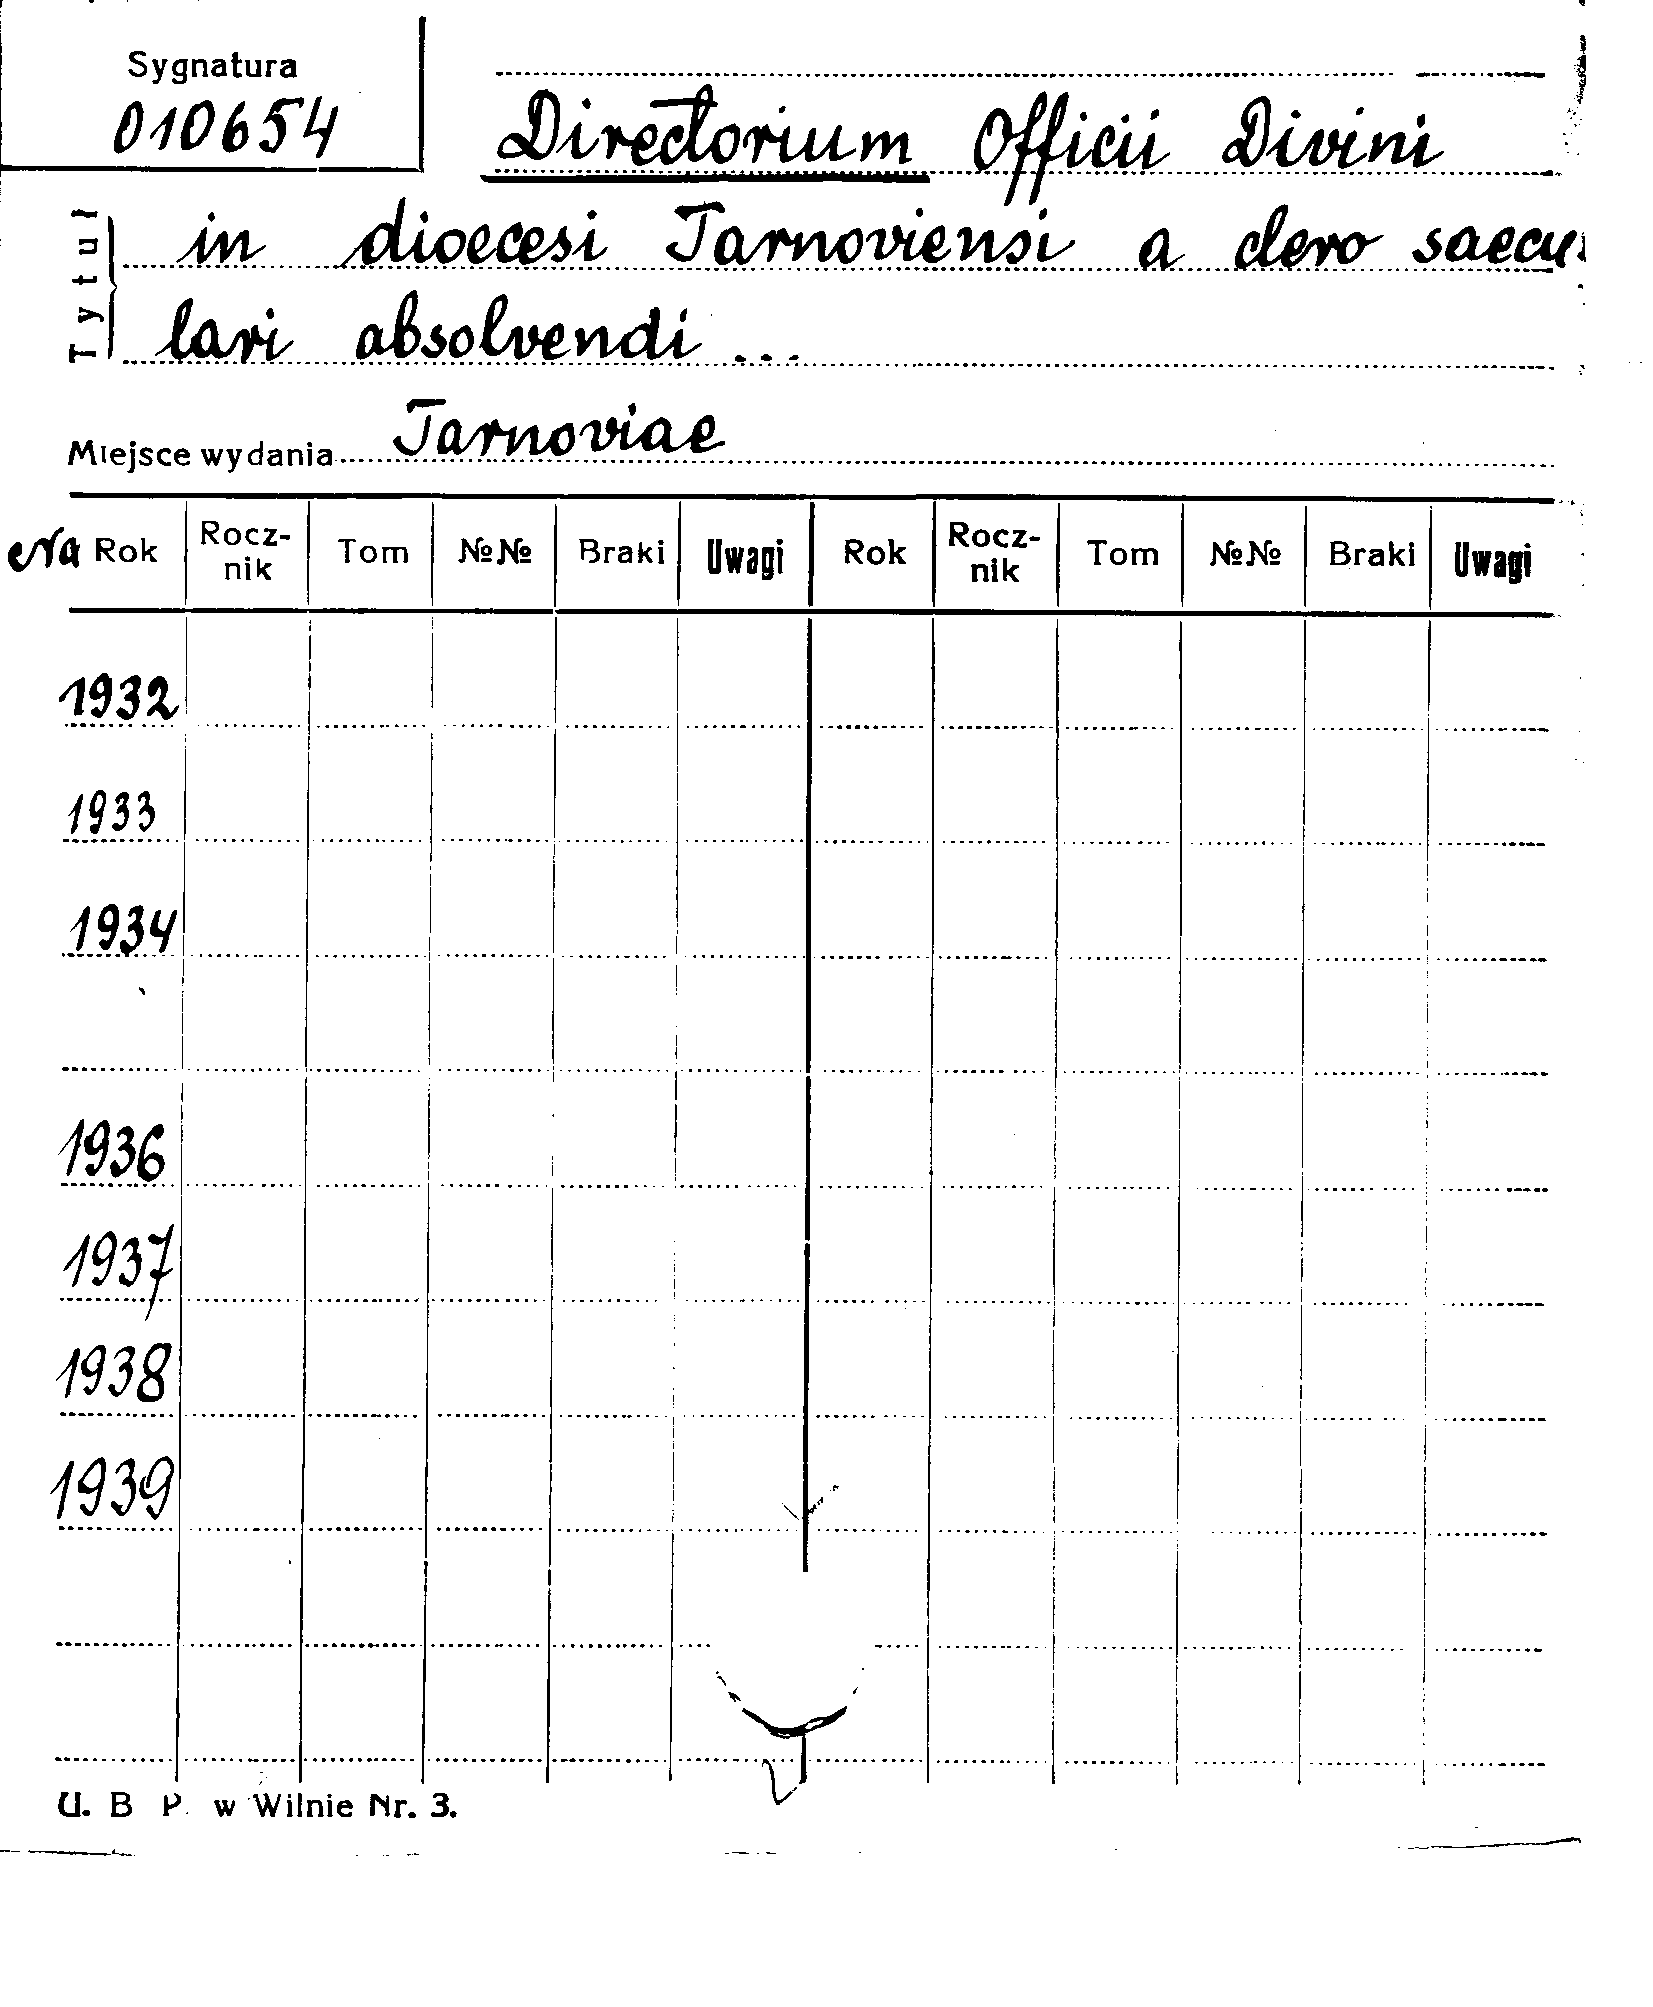 Sygnatura
010654
Directorium Officii Divini
Tytuł
in dioecesi Tarnoviensi a clero saecu-
lari absolvendi ...
Miejsce wydania Tarnoviae
Na Rok Rocz-nik Tom №№ Braki Uwagi Rok Rocz-nik Tom №№ Braki Uwagi
1932
1933
1934
1936
1937
1938
1939
U. B P. w Wilnie Nr. 3.